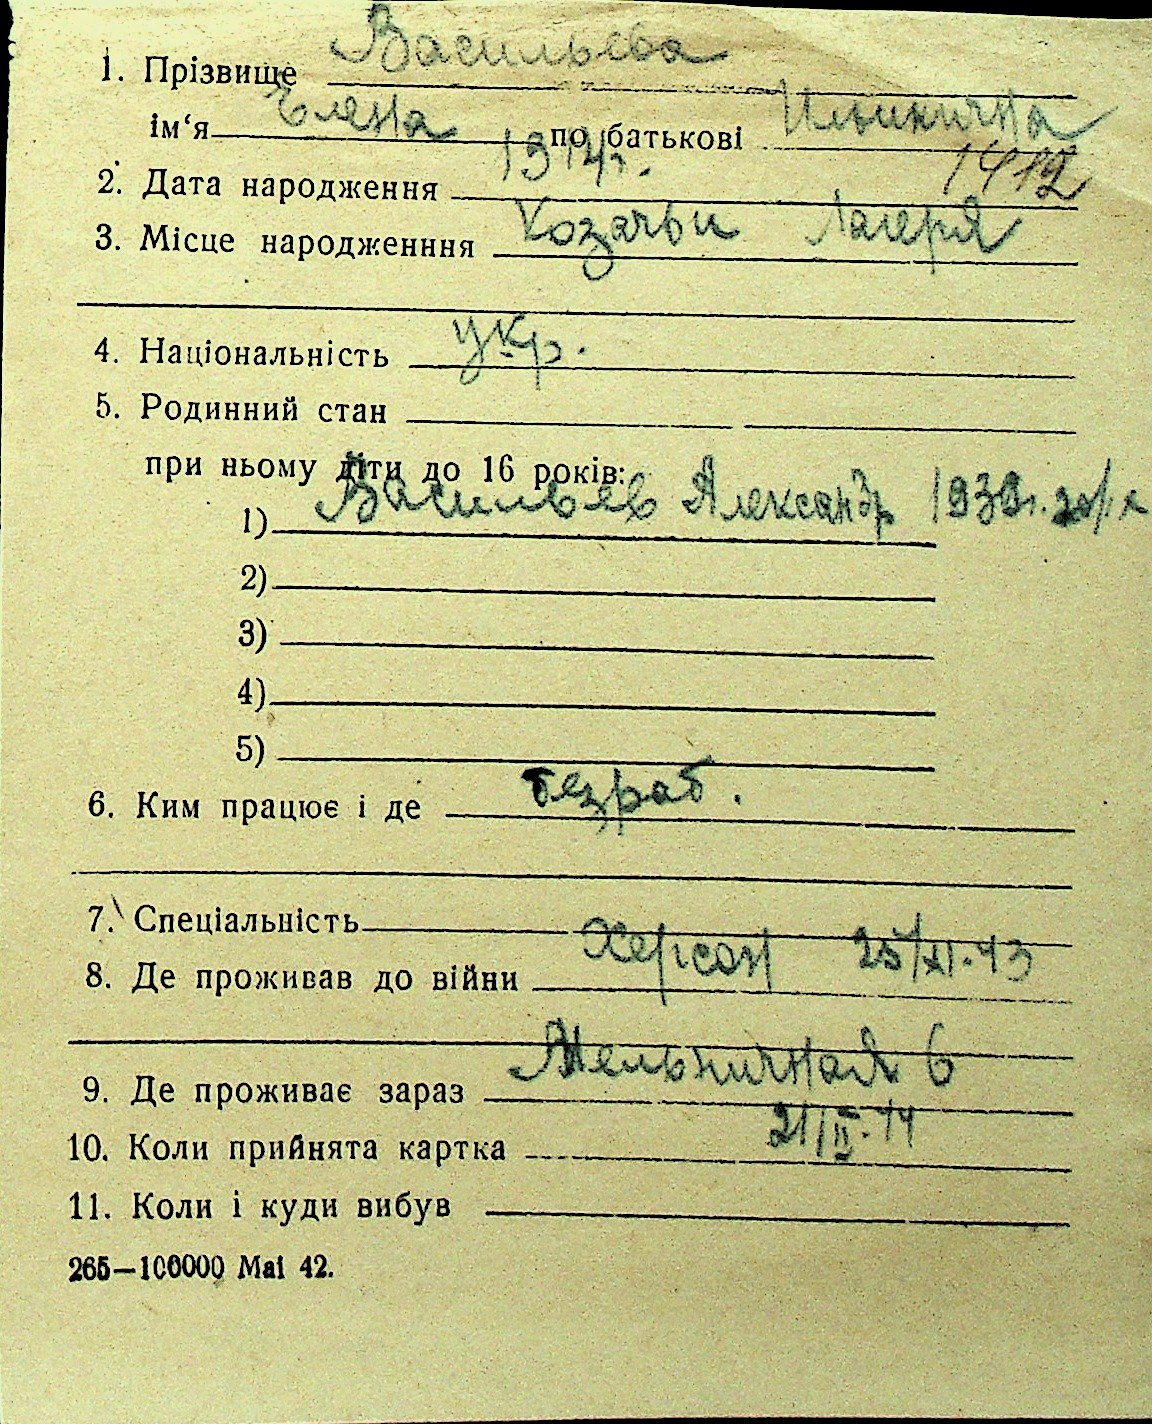 1. Прізвище Васильева
ім‘я Елена по батькові Ильинична
1412
2. Дата народження 1914г.
3. Місце народженння Козачьи Лагеря
4. Національність укр.
5. Родинний стан
при ньому діти до 16 років:
1) Васильев Александр 1939г.
2)
3)
4)
5)
6. Ким працює і де безраб.
7. Спеціальність
8. Де проживав до війни Херсон 25/XI.43
9. Де проживає зараз Мельничная 6
10. Коли прийнята картка 21/II.44
11. Коли і куди вибув
265—100000 Mai 42.